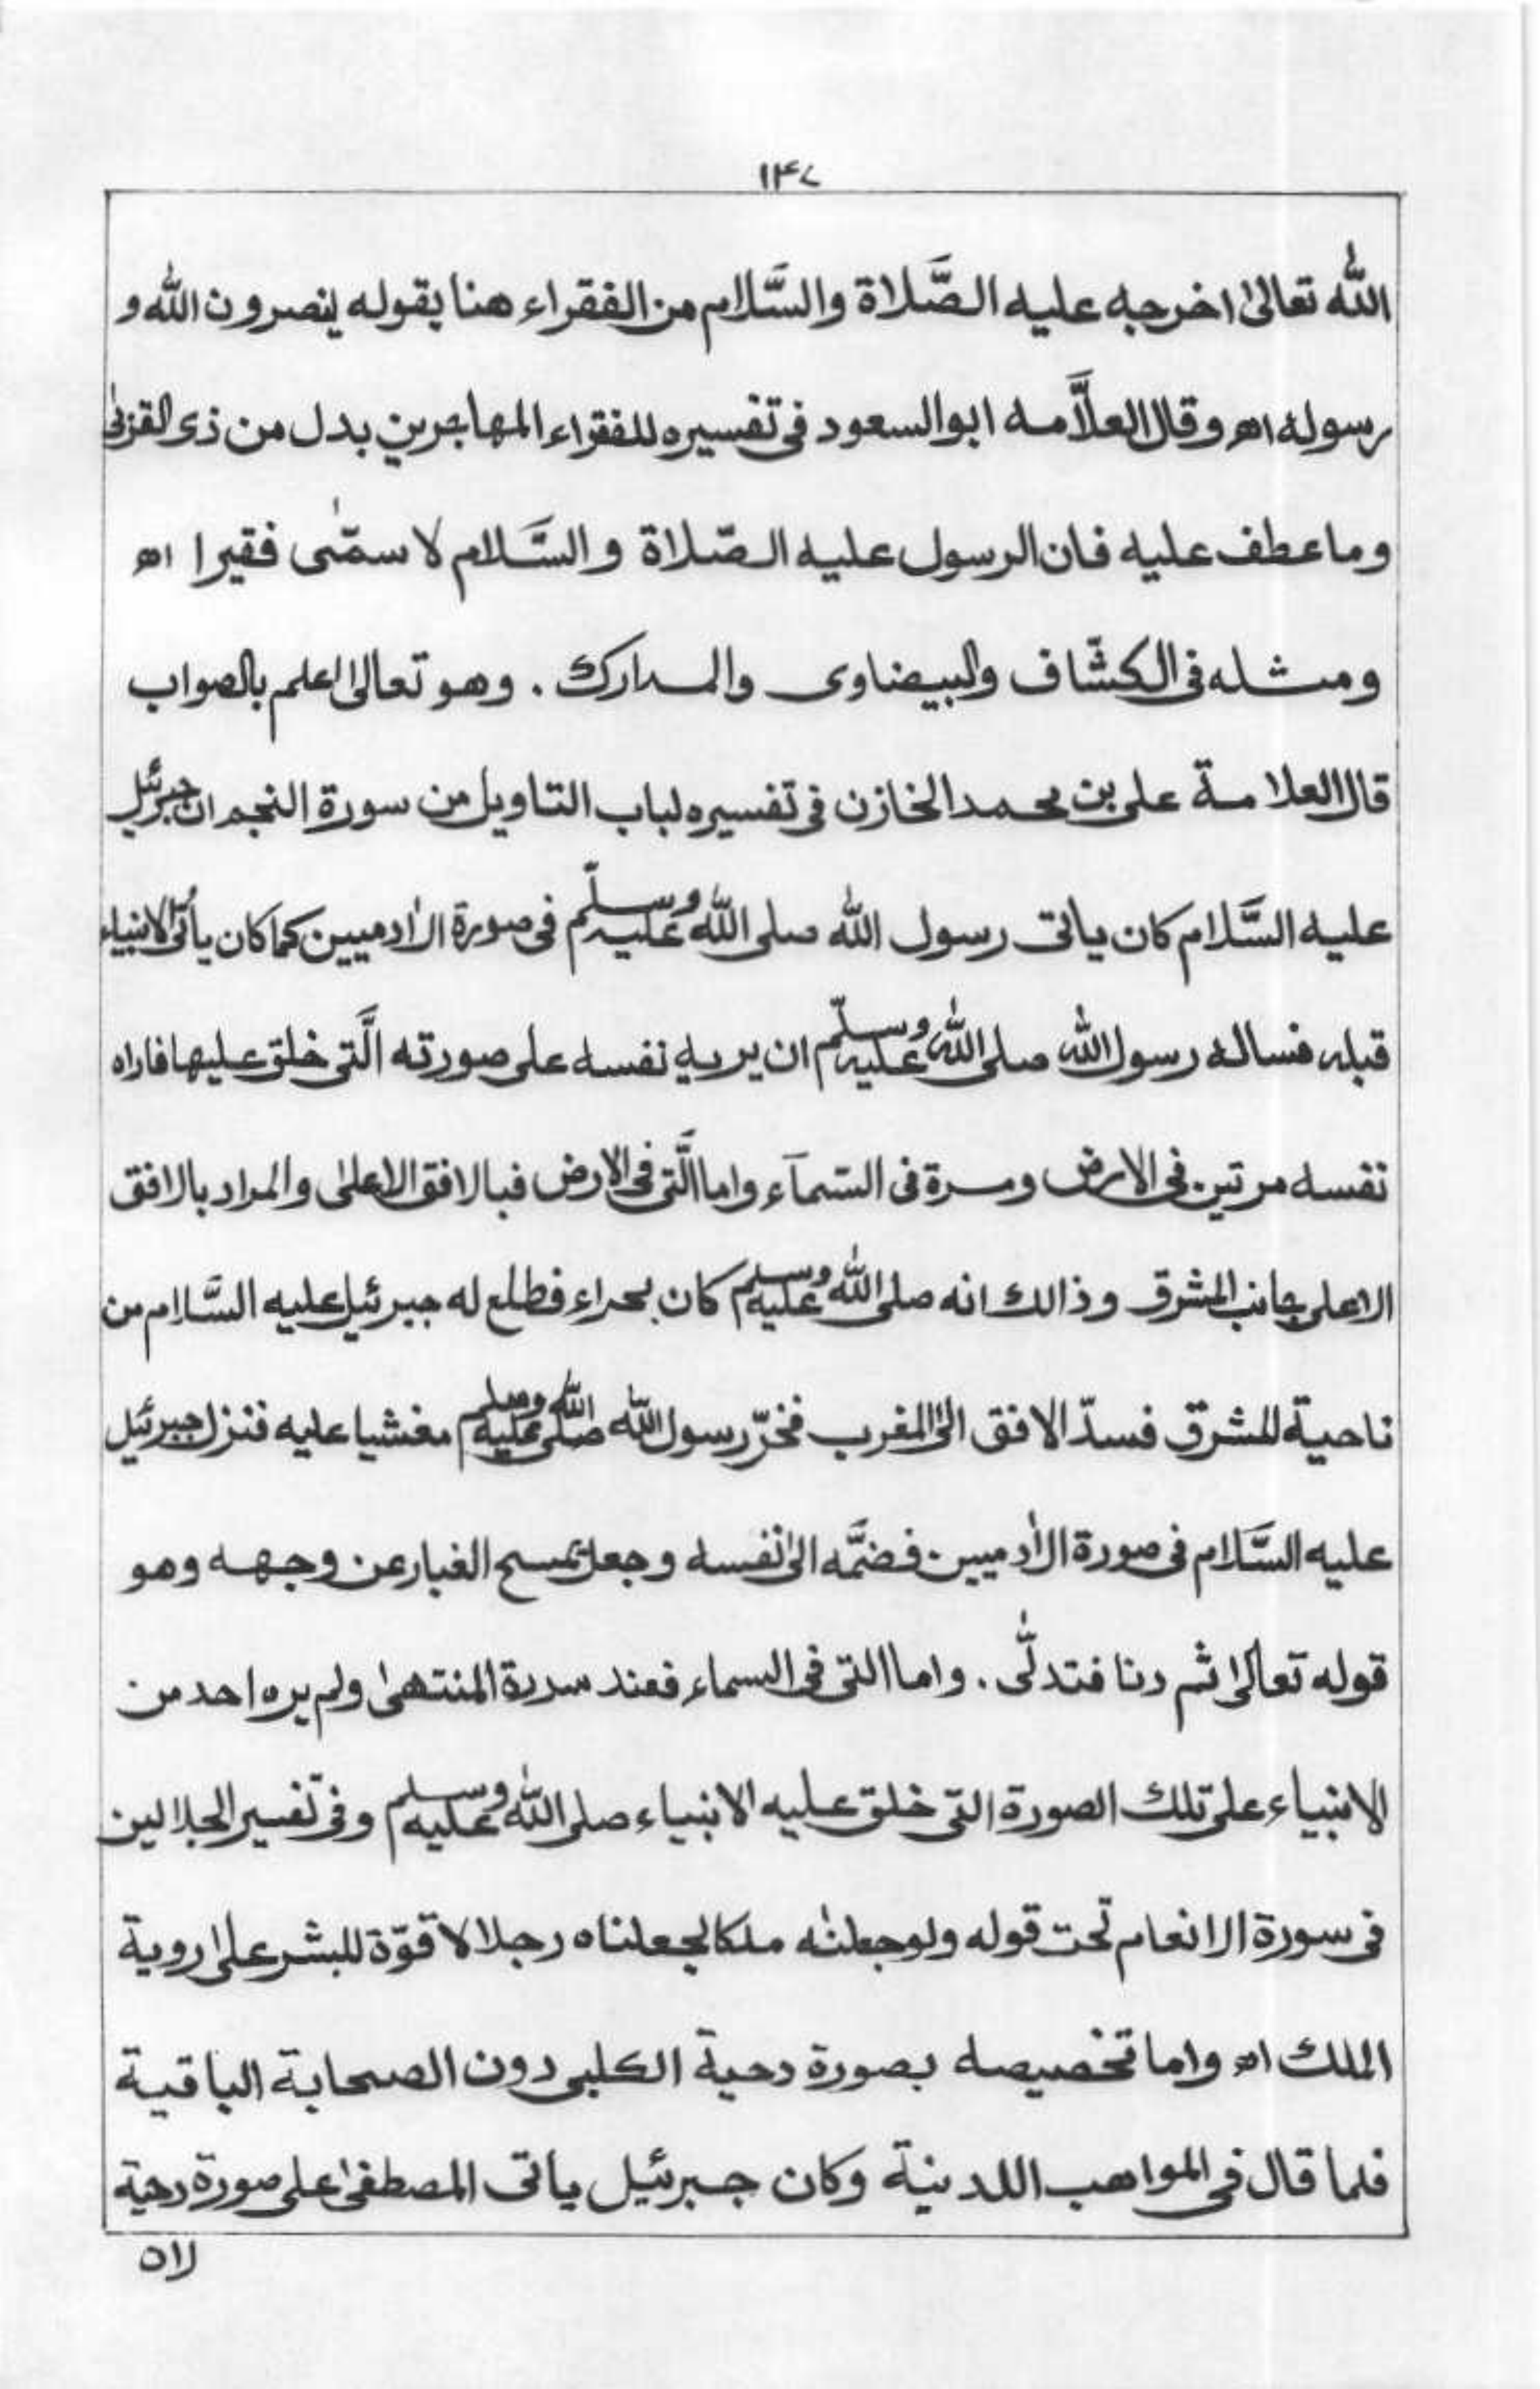 ١٤٧
الله تعالى اخرجه عليه الصَّلاة والسَّلام من الفقراء هنا بقوله ينصرون الله و
رسوله اھ وقال العلاَّمه ابو السعود فى تفسيره للفقراء المهاجرين بدل من ذى القربٰى
وما عطف عليه فان الرسول عليه الصّلاة والسَّلام لا سمّٰى فقيرا اھ
ومثله فى الكشّاف والبيضاوى والمدارك . وهو تعالىٰ اعلم بالصواب
قال العلامة على بن محمد الخازن فى تفسيره لباب التاويل من سورة النجم ان جبرئيل
عليه السَّلام كان ياتى رسول الله صلى الله عليه وسلّم فى صورة الاٰدميين كما كان يأتى الانبياء
قبله فساله رسول الله صلى الله عليه وسلّم ان يريه نفسه على صورته الَّتى خلق عليها فاراه
نفسه مرتين فى الارض ومرة فى السّمآء واما الَّتى فى الارض فبالافق الاعلىٰ والمراد بالافق
الاعلى جانب المشرق وذالك انه صلى الله عليه وسلم كان بحراء فطلع له جبرئيل عليه السَّلام من
ناحية المشرق فسدّ الافق الى المغرب فخرّ رسول الله صلى الله عليه وسلم مغشيا عليه فنزل جبرئيل
عليه السَّلام فى صورة الاٰدميين فضمَّه الىٰ نفسه وجعل يمسح الغبار عن وجهه وهو
قوله تعالىٰ ثم دنا فتدلّٰى . واما التى فى السماء فعند سدرة المنتهىٰ ولم يره احد من
الانبياء على تلك الصورة التى خلق عليه الانبياء صلى الله عليه وسلم وفى تفسير الجلالين
فى سورة الانعام تحت قوله ولو جعلنٰه ملكا لجعلناه رجلا لا قوّة للبشر علىٰ روية
الملك اھ واما تخصيصه بصورة دحية الكلبى دون الصحابة الباقية
فلما قال فى المواهب اللدنية وكان جبرئيل ياتى المصطفىٰ على صورة دحية